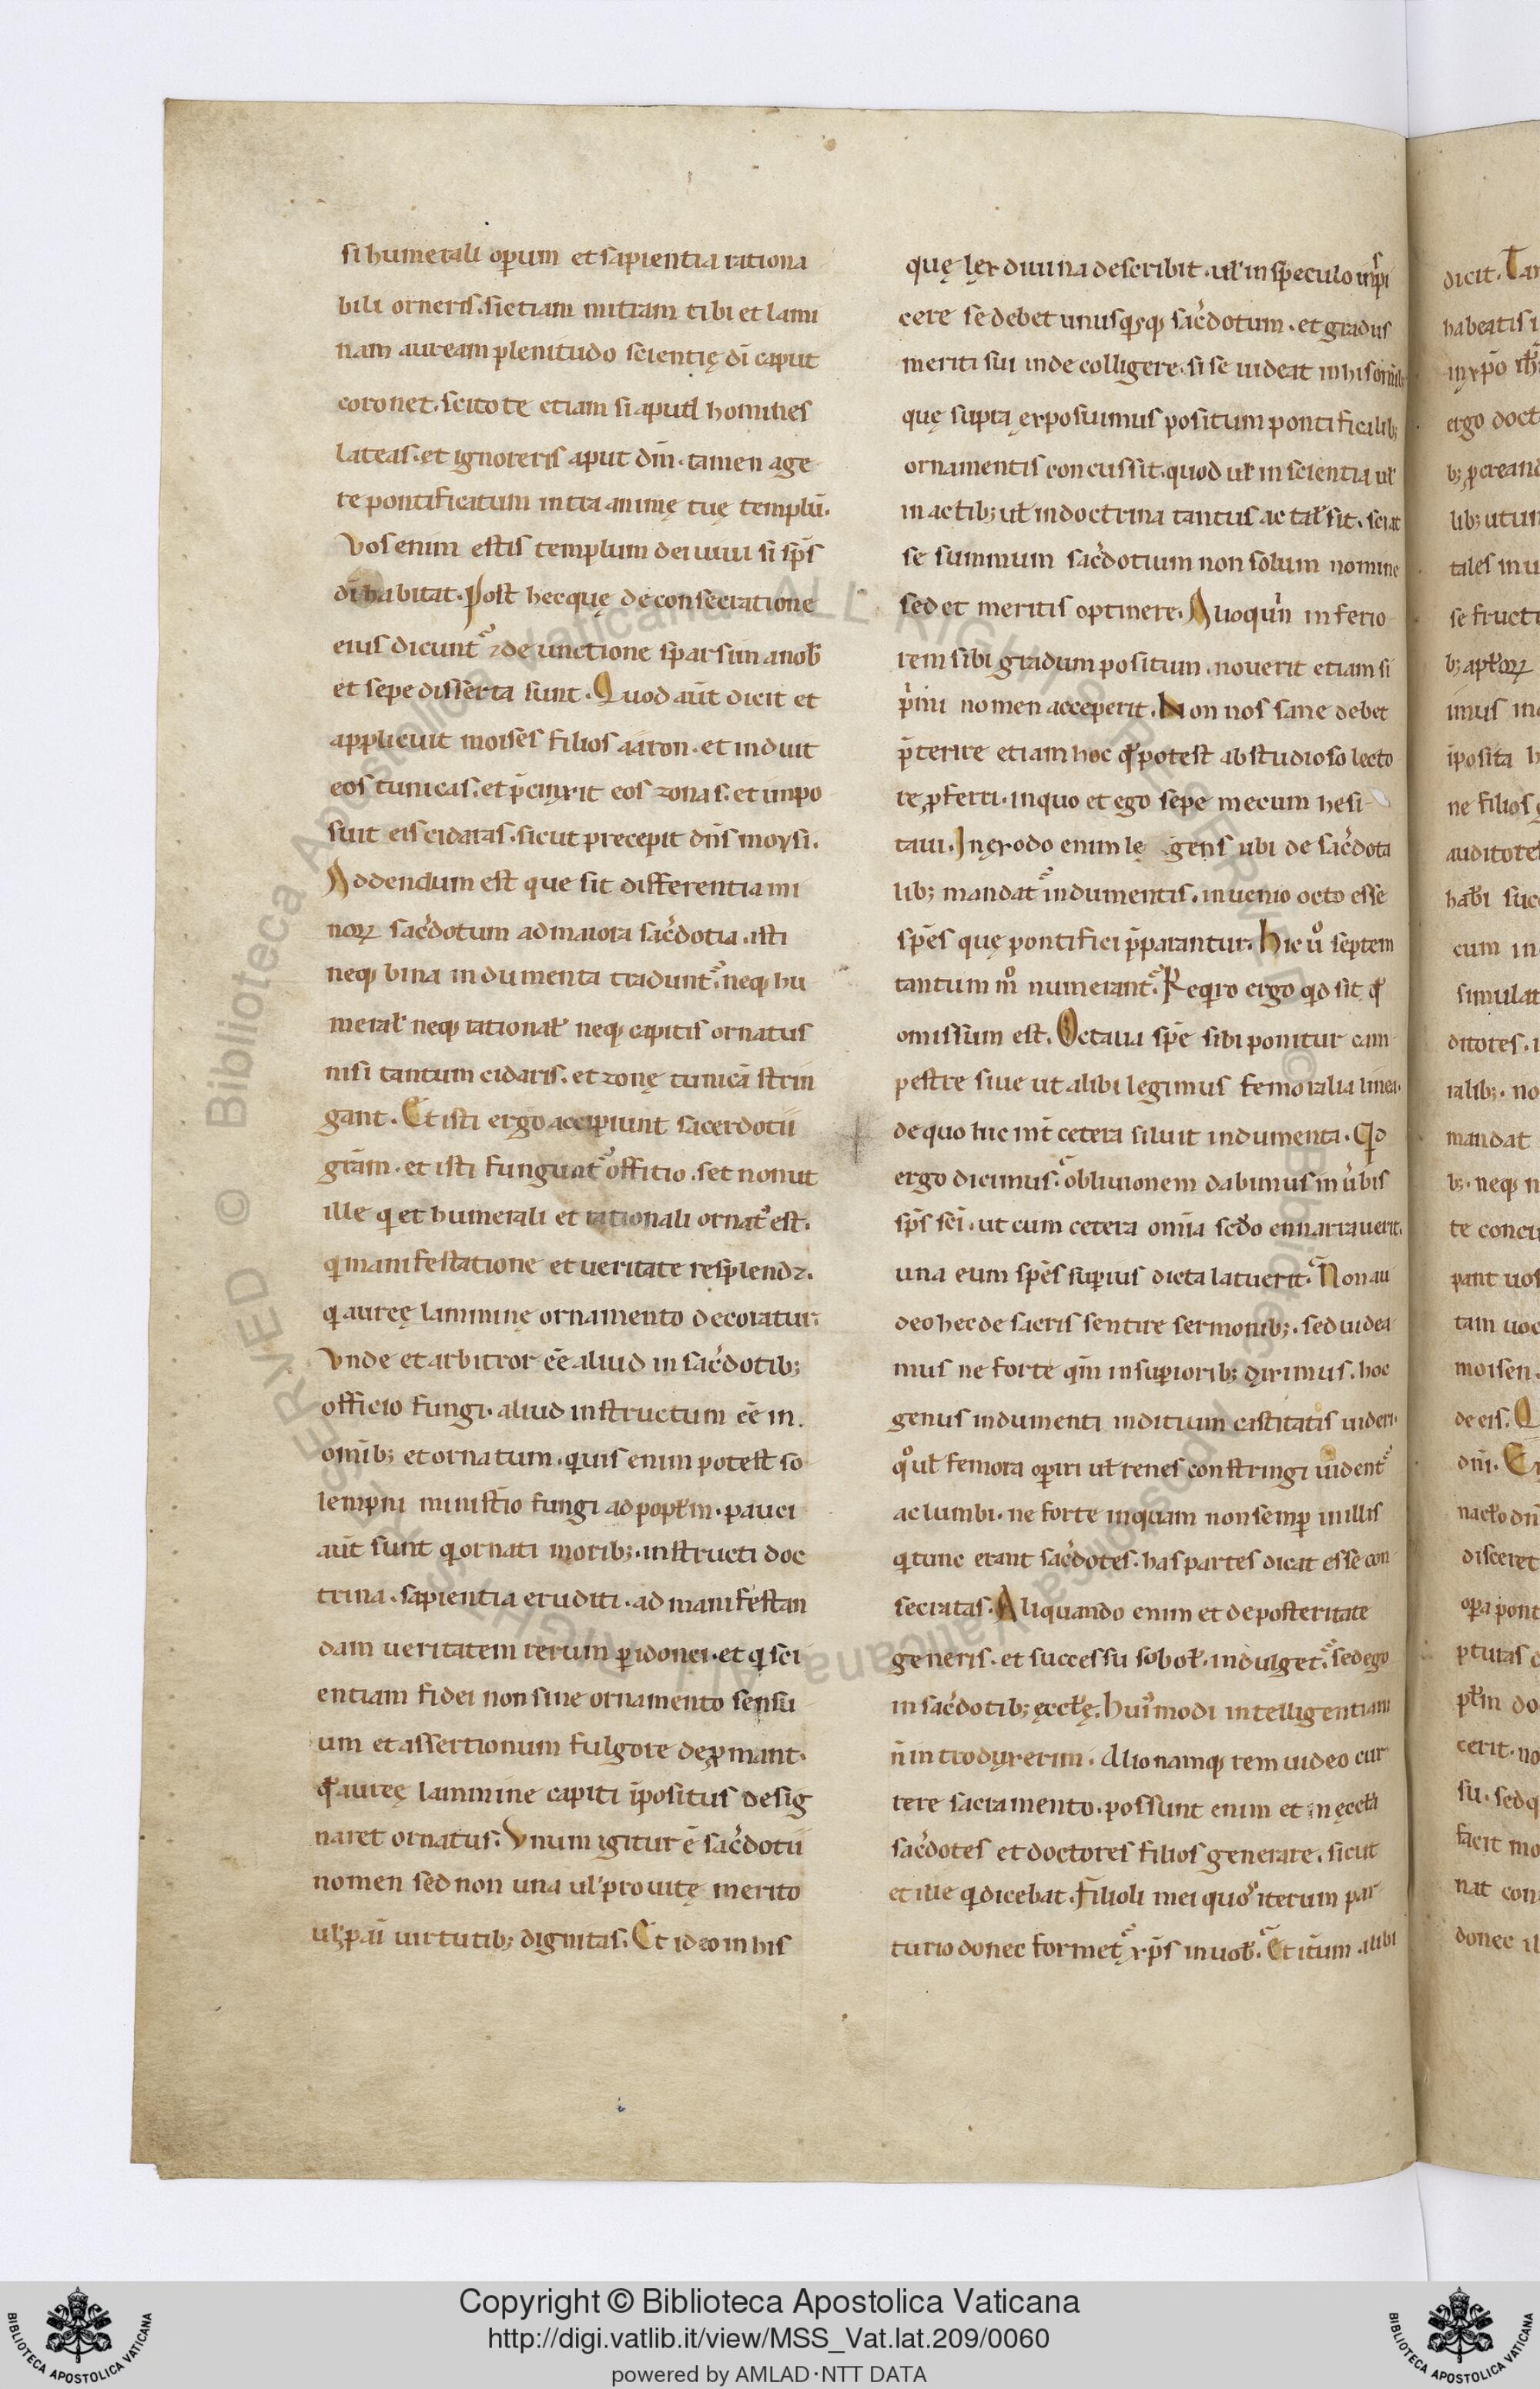 si humerali opum et sapientia rationa
bili orneris. si etiam mitram tibi et lami
nam auream plenitudo scientię dī caput
coronet. scito te etiam si aput homines
lateas. et ignoreris aput dm̄. tamen age
re pontificatum intra animę tuę templū.
Vos enim estis templum dei uiui si sps̄
dī habitat. Post hec quę de consecratione
eius dicunt᷑ ⁊ de unctione sparsim a nob̄
et sepe disserta sunt. Quod aūt dicit et
applicuit moises filios aaron. et induit
eos tunicas. et p̄cinxit eos zonas. et impo
suit eis cidaras. sicut precepit dn̄s moysi.
Addendum est que sit differentia mi
noꝝ sac̄dotum ad maiora sac̄dotia. isti
neq; bina indumenta tradunt᷑. neq; hu
meral̄ neq; rational̄ neq; capitis ornatus
nisi tantum cidaris. et zonę tunicā strin
gant. Et isti ergo accipiunt sacerdotii
grām. et isti funguntr᷑ officio. set non ut
ille q et humerali et rationali ornat᷒ est.
q manifestatione et ueritate resplend⁊.
q aureę laminę ornamento decoratur.
Vnde et arbitror eē aliud in sac̄dotib;
officio fungi. aliud instructum eē in.
omīb; et ornatum. quis enim potest so
lempni minist̄io fungi ad popl̄m. pauci
aūt sunt q ornati morib;. instructi doc
trina. sapientia eruditi. ad manifestan
dam ueritatem rerum ꝑidonei. et q sci
entiam fidei non sine ornamento sensu
um et assertionum fulgore deꝓmant.
qd̄ aureę lammine capiti īpositus desig
naret ornatus. Vnum igitur ē sac̄dotii
nomen sed non una ul̄ pro uitę merito
ul̄ p aī uirtutib; dignitas. Et ideo in his
quę lex diuina describit. ul̄ in speculo inspi
cere se debet unusqisq; sac̄dotum. et gradus
meriti sui inde colligere. si se uideat in his om̄ib;
quę supra exposuimus positum pontificalib;
ornamentis concussit. quod ul̄ in scientia ul̄
in actib; ul̄ in doctrina tantus ac tal̄ sit. sciat
se summum sac̄dotium non solum nomine
sed et meritis optinere. Alioqu̇n inferio
rem sibi gradum positum. nouerit etiam si
p̄mi nomen acceperit. Non nos sane debet
p̄terire etiam hoc qd̄ potest ab studioso lecto
re ꝓferri. in quo et ego sepe mecum hesi
taui. In exodo enim le gens ubi de sac̄dota
lib; mandat᷑ indumentis. inuenio octo esse
spēs quę pontifici p̄parantur. Hic ů septem
tantum m̊ numerant᷑. Reqiro ergo qd sit qd̄
omissum est. Octaua spē sibi ponitur cam
pestre siue ut alibi legimus femoralia linea.
de quo hic int̄ cetera siluit indumenta. Qd
ergo dicimus. obliuionem dabimus in u̇bis
sps̄ sc̄i. ut cum cetera om̄ia sc̄do ennarrauerit.
una eum spēs supius dicta latuerit. Non au
deo hec de sacris sentire sermonib;. sed uidea
mus ne forte qm̄ in supiorib; diximus. hoc
genus indumenti inditium castitatis uideri.
q̊ ul̄ femora opiri ul̄ renes constringi uident᷑
ac lumbi. ne forte inquam non semp in illis
q tunc erant sac̄dotes. has partes dicat esse con
secratas. Aliquando enim et de posteritate
generis. et successu sobol̄. indulget᷑. sed ego
in sac̄dotib; ęccl̄ę. hui᷒modi intelligentiam
n̄ introdyxerim. Alio namq; rem uideo cur
rere sacramento. possunt enim et in ęccl̄a
sac̄dotes et doctores filios generare. sicut
et ille q dicebat. Filioli mei quos iterum par
turio donec formet᷑ xp̄s in uob̄. Et it̄um alibi
dicit. Tan
habeatis i
in xp̄o ih̄
ergo doct
b; ꝓcreand
lib; utun
tales in u
se fructi
b; apl̄oꝝ
imus in
īposita h
ne filios
auditores
hab̄i succ
cum in
simulat
ditores. i
ralib;. no
mandat
b;. neq; n
te concu
pant uos
tam uoc
moisen.
de eis. Q
dn̄i. Er
nacl̄o dn̄
disceret
opa pont
ptutas
pl̄m do
cerit. no
su. sed q
facit mo
nat con
donec il
Copyright © Biblioteca Apostolica Vaticana
http://digi.vatlib.it/view/MSS_Vat.lat.209/0060
powered by AMLAD·NTT DATA
BIBLIOTECA APOSTOLICA VATICANA
BIBLIOTECA APOSTOLICA VATICANA